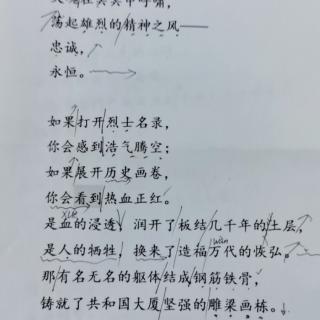 中呼啸,
荡起雄烈的精神之风——
忠诚,
永恒。
如果打开烈士名录,
你会感到浩气腾空;
如果展开历史画卷,
你会看到热血正红。
是血的浸透,润开了板结几千年的土层,
是人的牺牲,换来了造福万代的恢弘。
那有名无名的躯体结成钢筋铁骨,
铸就了共和国大厦坚强的雕梁画栋。